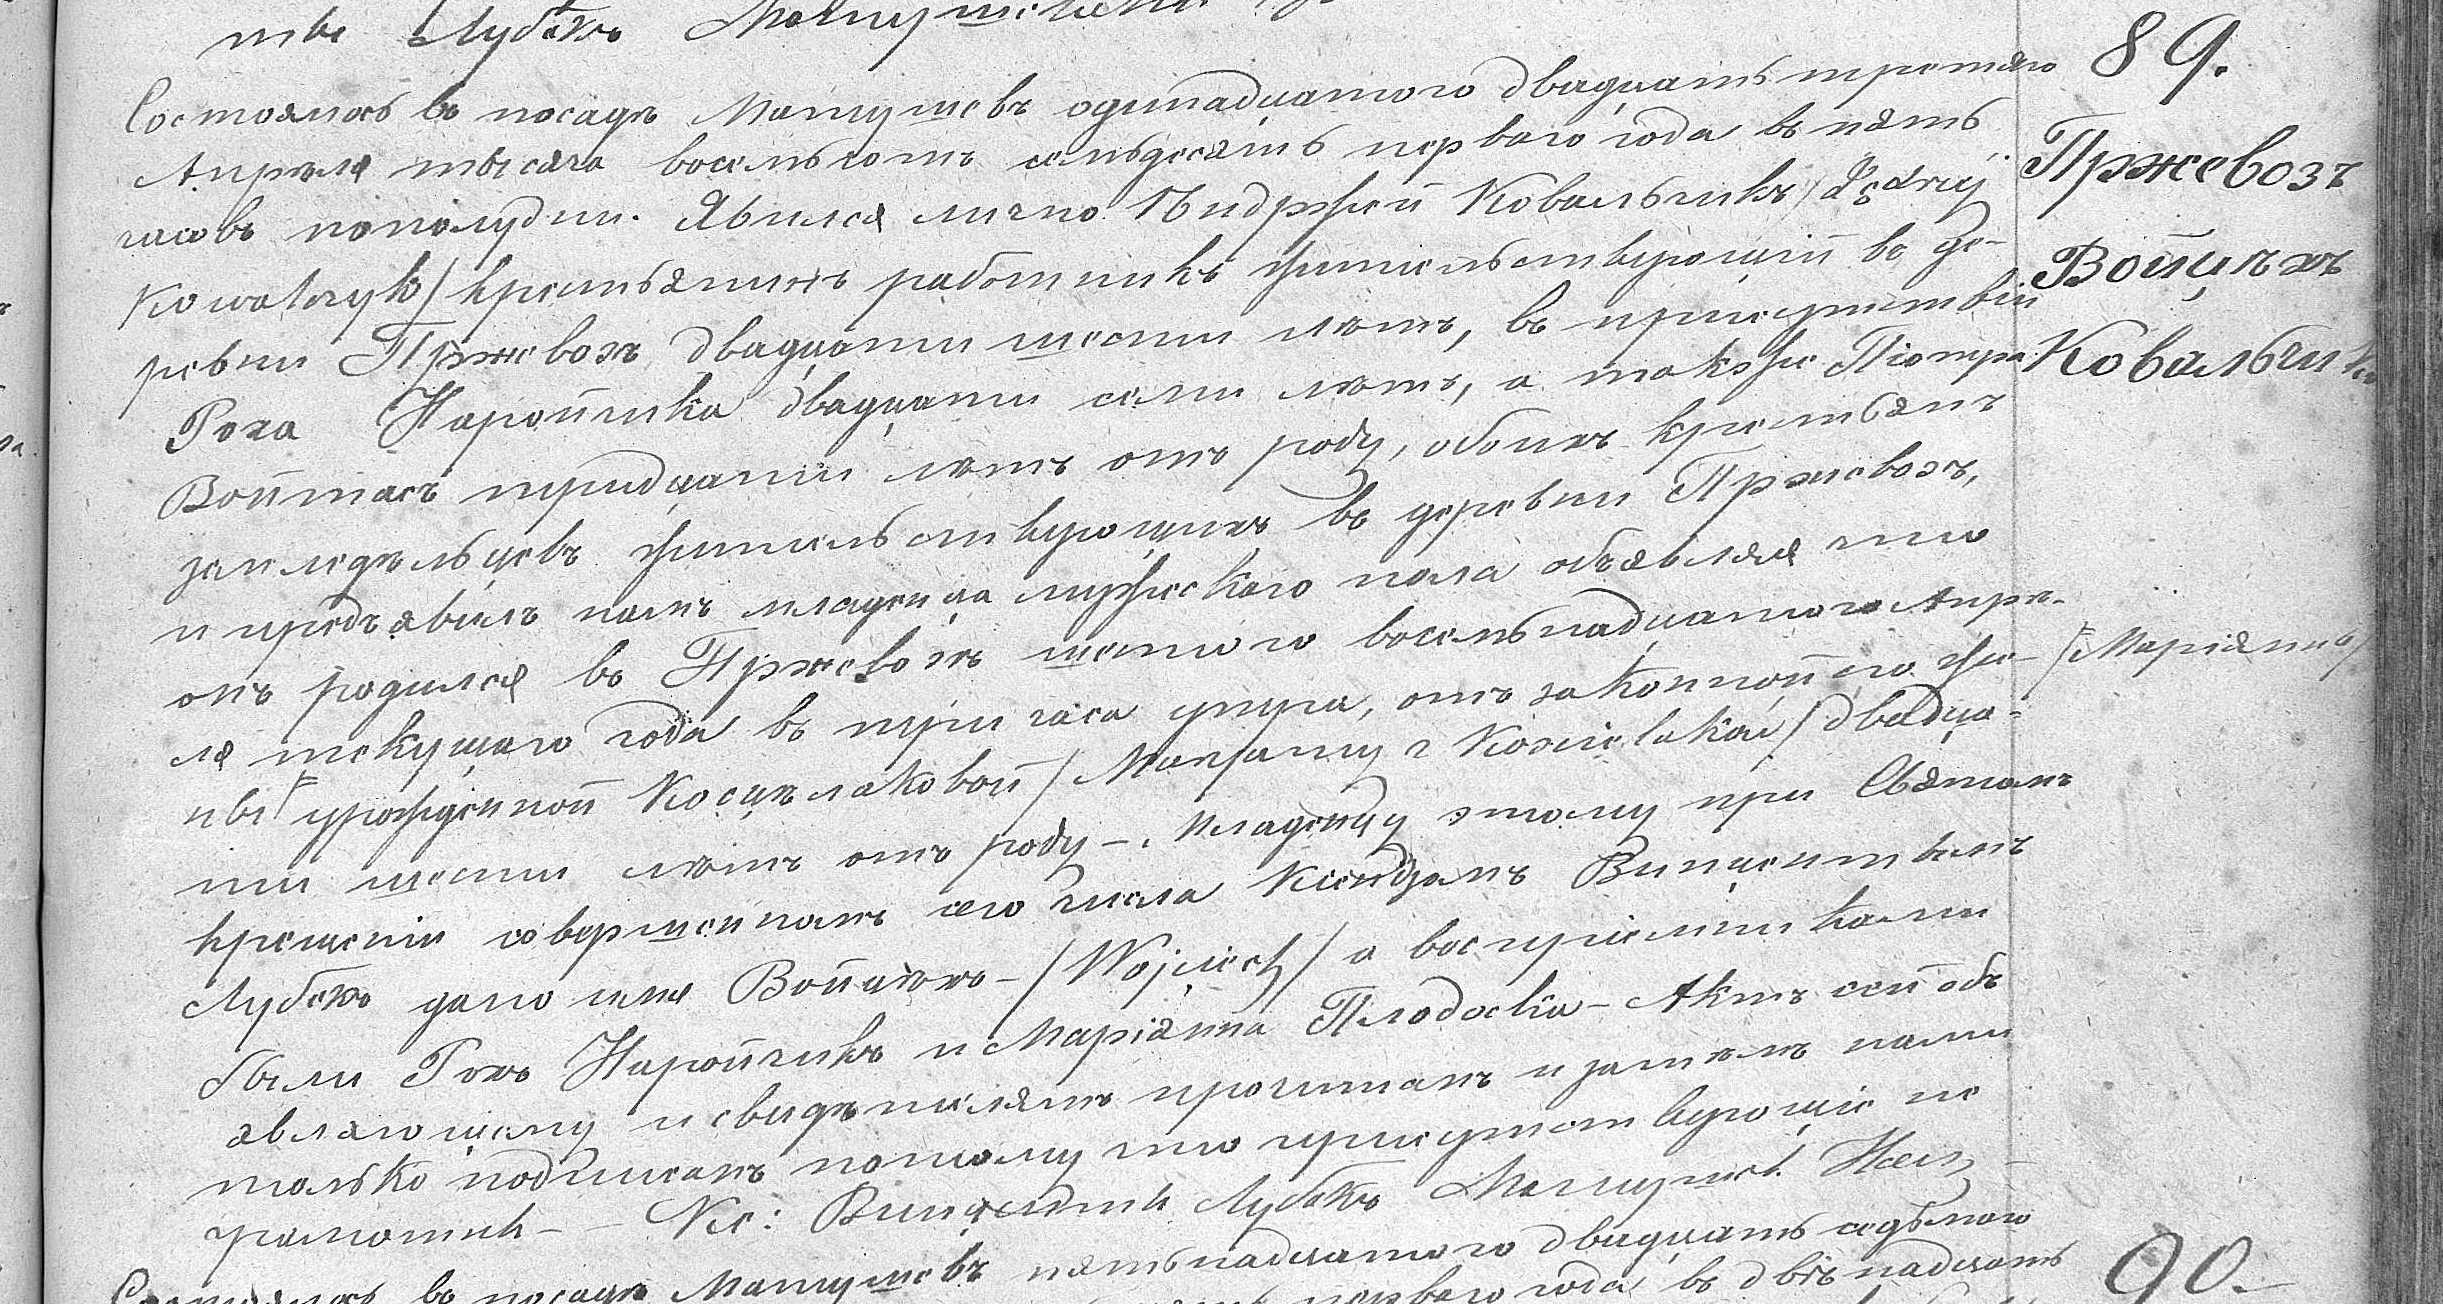 Лубѣкъ
Состоялось въ посадѣ Матушевѣ одинадцатого двадцать третяго
Апрѣля тысяча восемьсотъ семьдесятъ первого года въ пять
часовъ пополудни. Явился лично Ендржей Ковальчикъ /Jędrzej
Kowalczyk/ крестьянинъ работникъ жительствующій въ де-
ревни Пржевозъ двадцати шести лѣтъ, въ присутствіи
Роха Наройчика двадцати семи лѣтъ, а также Піотра
Войтасъ тридцати лѣтъ отъ роду, обоихъ крестьянъ
земледѣльцевъ жительствующихъ въ деревни Пржевозъ,
и предъявилъ намъ младенца мужескаго пола объявляя что
онъ родился въ Пржевозѣ шестого восемьнадцатого Апрѣ-
ля текущаго года въ три часа утра, отъ законной его же-
ны Г урожденной Косцѣлаковой /Maryanny z Kościelaków/ двадца-
ти шести лѣтъ отъ роду –. Младенцу этому при Святомъ
крещеніи совершенномъ сего числа Ксендзомъ Винцентымъ
Лубѣкъ дано имя Войцѣхъ – /Wojciech/ а воспріемниками
были Рохъ Наройчикъ и Маріянна Плодоска – Актъ сей объ
являющему и свидѣтелямъ прочитанъ и затѣмъ нами
только подписанъ потому что присутствующіе не
грамотни – – Кс: Винцентій Лубѣкъ
Состоялось въ посадѣ Матушевѣ пятьнадцатого двадцать седьмого
первого года въ двѣнадцать
89.
Пржевозъ
Войцѣхъ
Ковальчикъ
Г /Маріянны/
90.